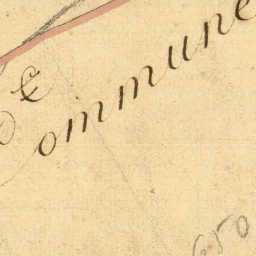 Commune
650